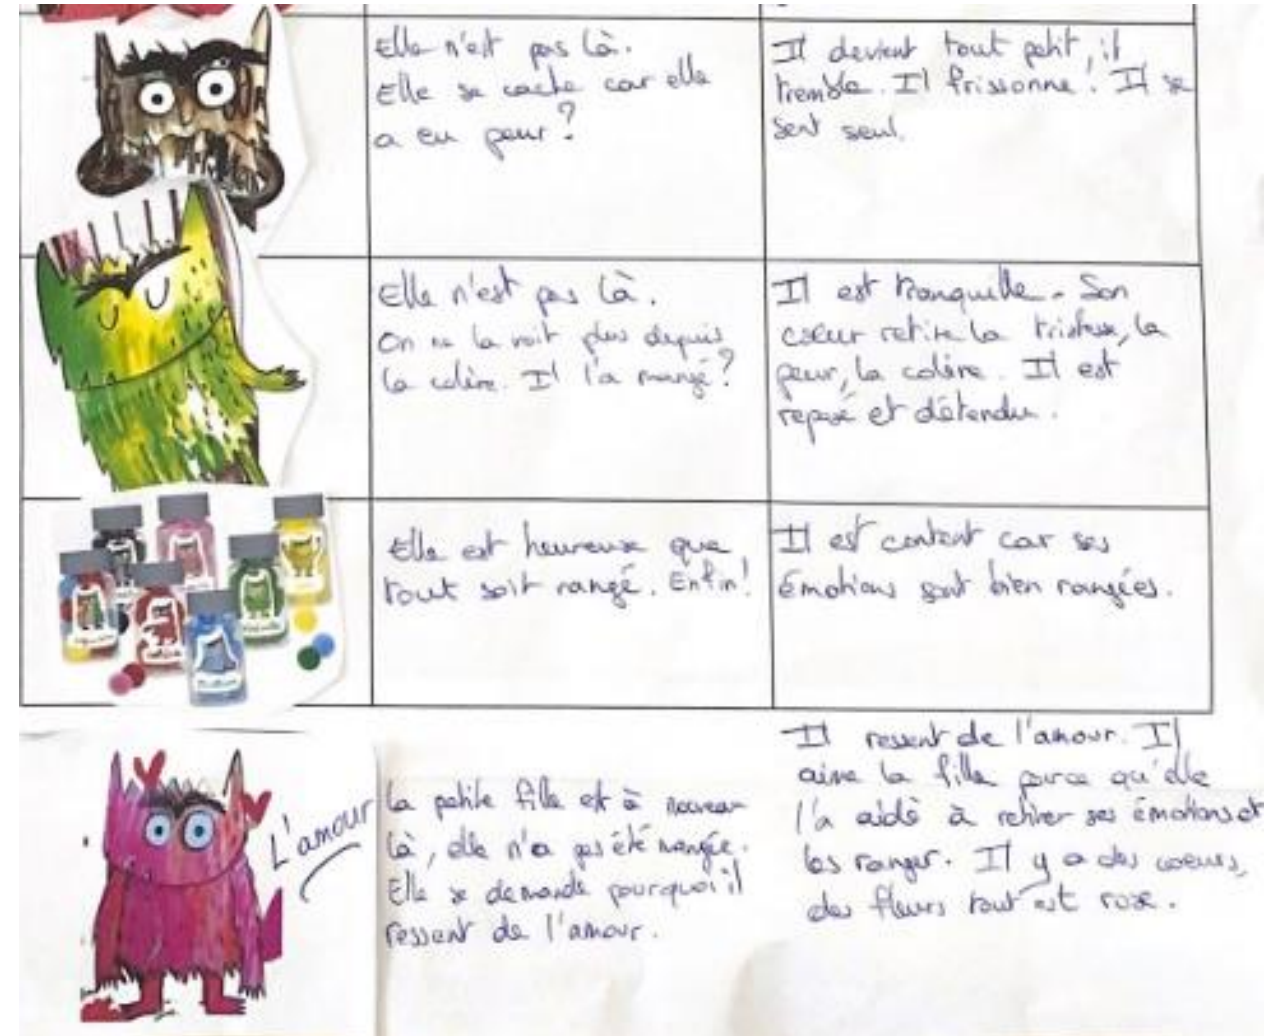 Elle n'est pas là.
Elle se cache car elle
a eu peur ?
Il devient tout petit, il
tremble. Il frissonne ! Il se
sent seul.
Elle n'est pas là.
On ne la voit plus depuis
la colère. Il l'a mangé ?
Il est tranquille. Son
coeur retire la tristesse, la
peur, la colère. Il est
reposé et détendu.
Elle est heureuse que
tout soit rangé. Enfin !
Il est content car ses
émotions sont bien rangées.
L'amour
La petite fille est à nouveau
là, elle n'a pas été mangée.
Elle se demande pourquoi il
ressent de l'amour.
Il ressent de l'amour. Il
aime la fille parce qu'elle
l'a aidé à retirer ses émotions et
les ranger. Il y a des coeurs,
des fleurs tout est rose.